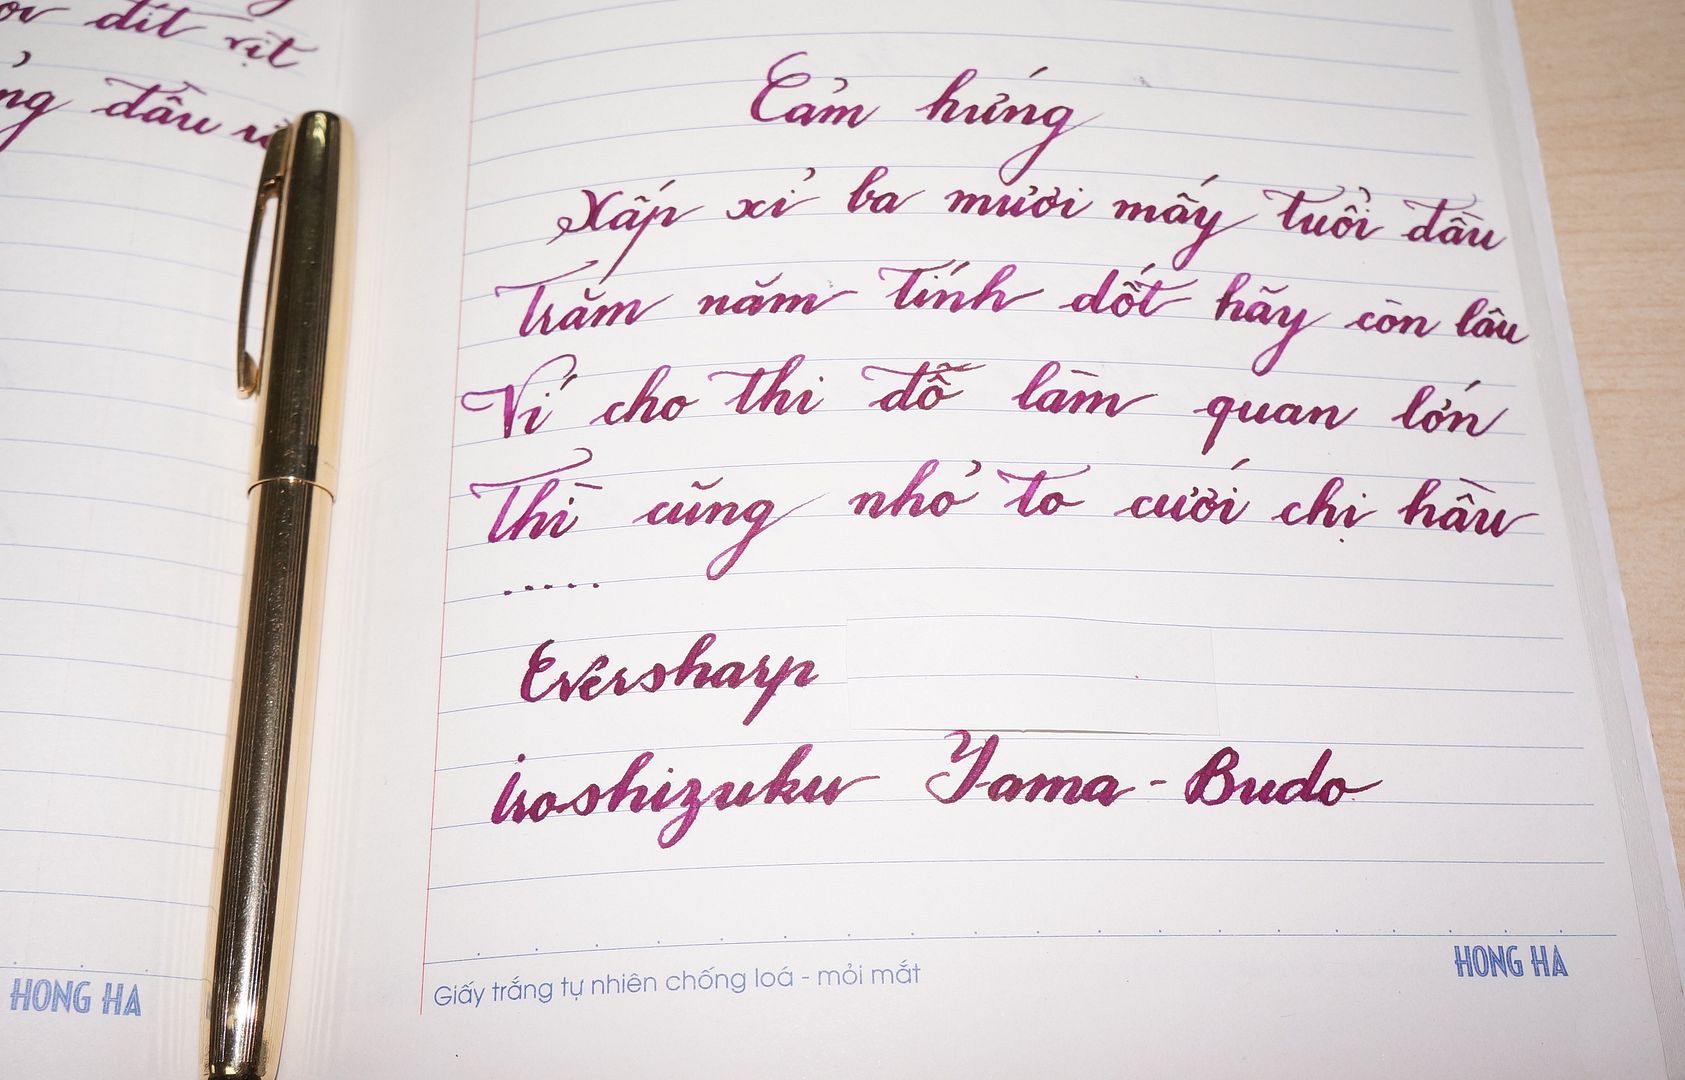 đít vịt
đầu
Cảm hứng
Xấp xỉ ba mươi mấy tuổi đầu
Trăm năm tính đốt hãy còn lâu
Ví cho thi đỗ làm quan lớn
Thì cũng nhỏ to cưới chị hầu
.....
Eversharp
iroshizuku Yama-Budo
Giấy trắng tự nhiên chống loá - mỏi mắt
HONG HA
HONG HA